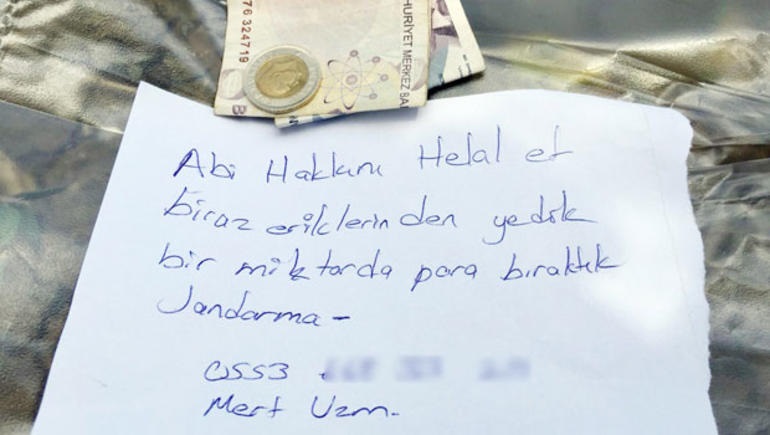 76 324719
HURİYET MERKEZ BA
B
Abi Hakkını Helal et
biraz eriklerinden yedik
bir miktarda para bıraktık
Jandarma -
0553
Mert Uzm.